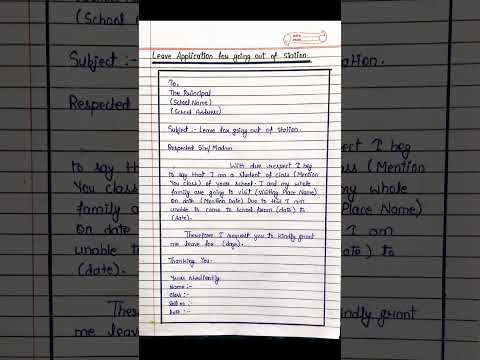 Leave Application for going out of Station.
To,
The Principal
(School Name)
(School Address)
Subject :- Leave for going out of station.
Respected Sir/Madam
With due respect I beg
to say that I am a student of class (Mention
You class) of your school. I and my whole
family are going to visit (Visiting Place Name)
on date (Mention Date) Due to this I am
unable to come to school from (date) to
(date).
Therefore I request you to kindly grant
me leave for (days).
Thanking You.
Yours obediently
Name :-
Class :-
Roll no :-
Date :-
(School Address)
Subject :-
Respected
family a
on date
unable t
(date).
There
me leave
tation.
I beg
(Mention
y whole
Place Name)
I am
) to
kindly grant